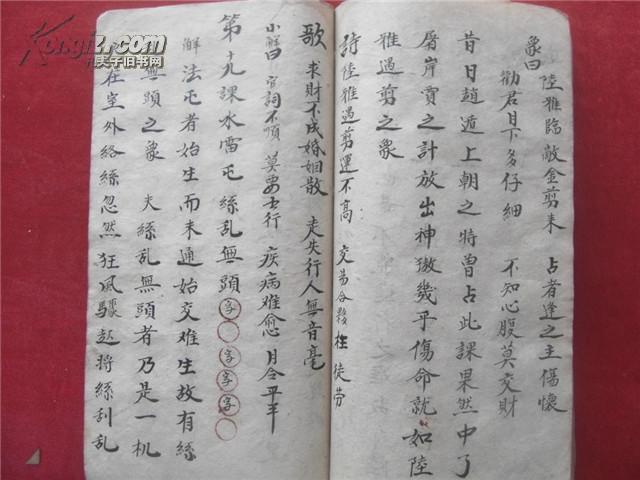 象曰 陸雅臨敵金剪来 占者逢之主傷懷
勸君目下多仔細 不知心腹莫交財
昔日趙遁上朝之時曾占此課果然中了
屠岸賈之計放出神獒幾乎傷命就如陸
雅遇剪之象
詩 陸雅遇剪運不高 交易合夥枉徒劳
歌 求財不成婚姻散 走失行人無音毫
小解曰 官詞不順 莫要出行 疾病难愈 月令平平
第十九課水雷屯 絲乱無頭 字〇字字字〇
解 法屯者始生而未通始交难生故有絲
無頭之象 夫絲乱無頭者乃是一机
在室外絡絲忽然狂風驟起将絲刮乱
Kongfz.com
孔夫子旧书网